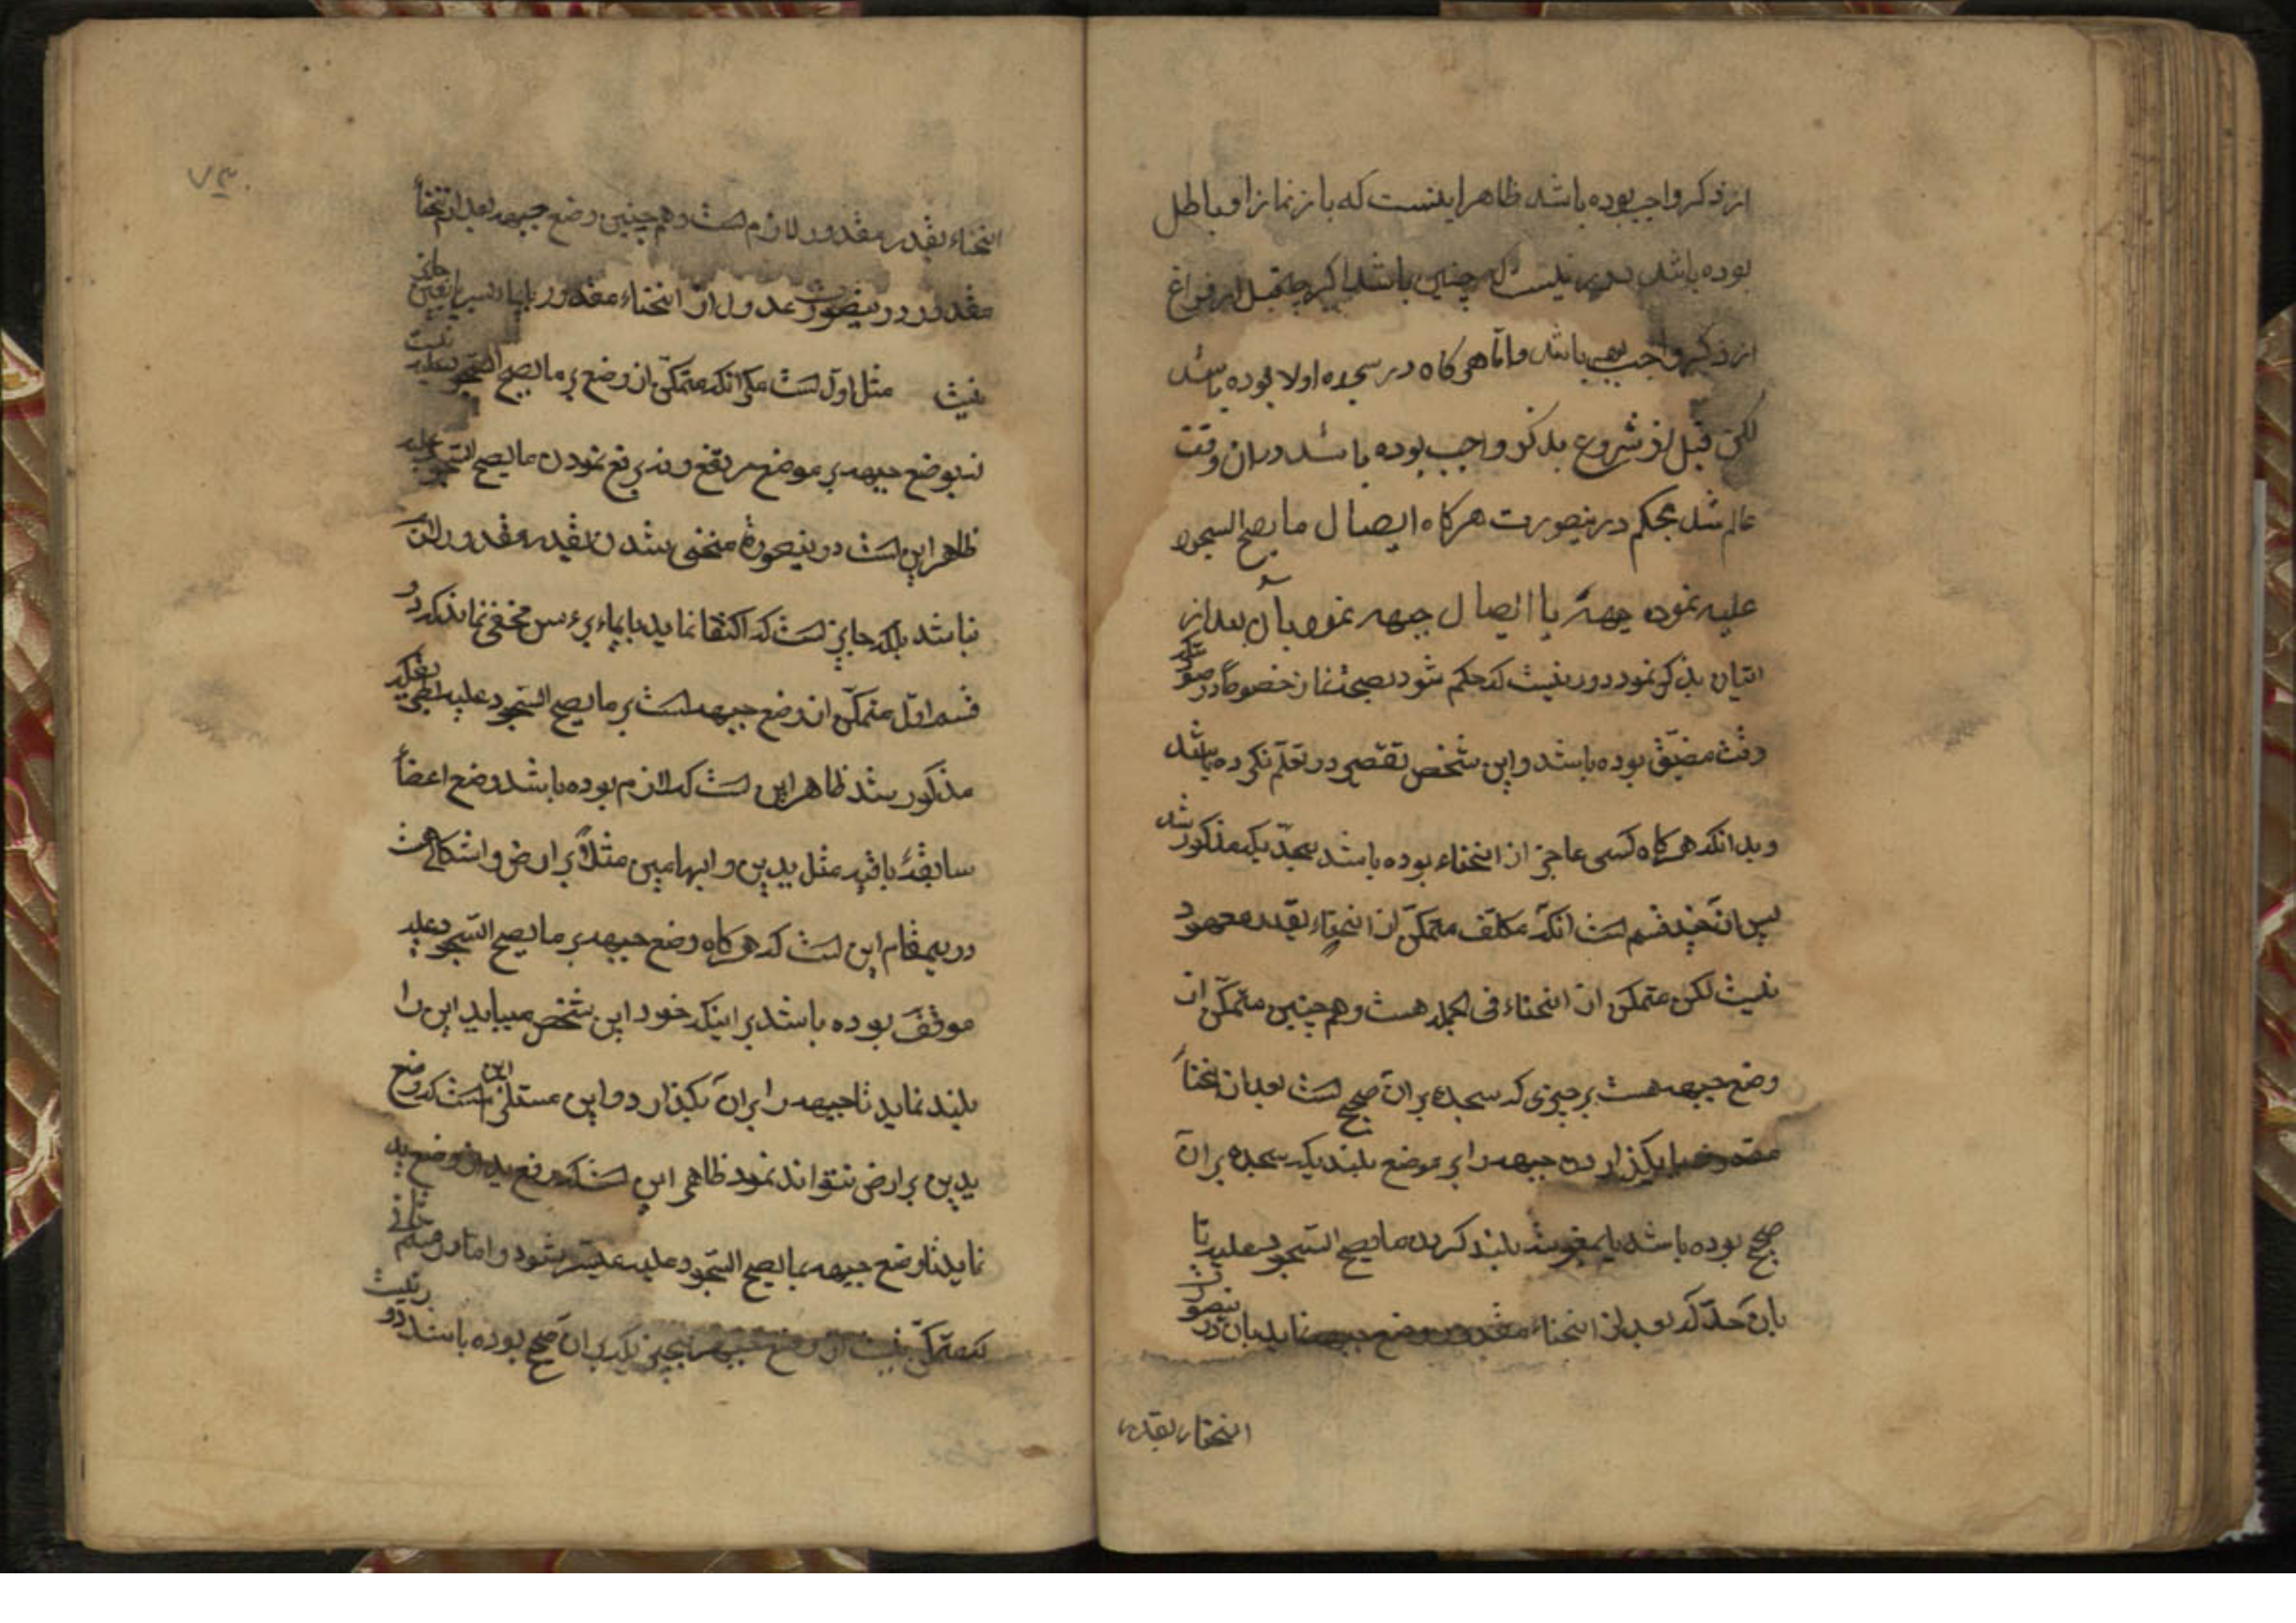 از ذکر واجب بوده باشد ظاهر اینست که باز نماز او باطل
بوده باشد بعید نیست که چنین باشد اگر چه قبل از فراغ
از ذکر واجب هم باشد و اما هر کاه در سجده اولا بوده باشد
لکن قبل از شروع بذکر واجب بوده باشد در ان وقت
عالم شد بحکم درینصورت هر کاه ایصال ما یصح السجود
علیه نموده بجبهه یا ایصال جبهه نموده بآن بعد از
اتیان بذکر نمود دور نیست که حکم شود بصحة نماز خصوصا در صورتیکه
وقت مضیّق بوده باشد و این شخص تقصیر در تعلّم نکرده باشد
و بدانکه هر کاه کسی عاجز از انحناء بوده باشد بحدّیکه مذکور شد
پس ان چند قسم است انکه مکلّف متمکّن از انحناء بقدر معهود
نیست لکن متمکن از انحناء فی الجمله هست و هم چنین متمکّن از
وضع جبهه هست بر چیزی که سجده بر ان صحیح است بعد از انحناء
مقدور خود یا بکذاردن جبهه را بر موضع بلندیکه سجده بر ان
صحیح بوده باشد یا بمعونت بلند کردن ما یصح السّجود علیه تا
باین حدّ که بعد از انحناء مقدور وضع جبهه نماید بان در ینصورت
انحناء بقدر
۷۳
انحناء بقدر مقدور لازم است و هم چنین وضع جبهه بعد از انحناء
مقدور در ینصورت عدول از انحناء مقدور بایماء بسر یا بعین جایز
نیست مثل اول است مکر انکه متمکّن از وضع بر ما یصح السّجود علیه نیست
نه بوضع جبهه بر موضع مرتفع و نه برفع نمودن ما یصح السّجود علیه
ظاهر این است در ینصورة منحنی شدن بقدر مقدور لازم
نباشد بلکه جایز است که اکتفا نماید بایماء برءس مخفی نماند که در
قسم اوّل متمکّن از وضع جبهه است بر ما یصح السّجود علیه بطریقیکه
مذکور شد ظاهر این است که لازم بوده باشد وضع اعضاء
سابقهٔ باقیه مثل یدین و ابهامین مثلاً بر ارض و اشکالی هست
در یمقام این است که هر کاه وضع جبهه بر ما یصح السّجود علیه
موقف بوده باشد بر اینکه خود این شخص میباید این را
بلند نماید تا جبهه را بر ان بکذارد و این مستلزم این است که وضع
یدین بر ارض نتواند نمود ظاهر این است که رفع ید از وضع ید
نماید تا وضع جبهه بما یصح السّجود علیه میسّر شود و اما در قسم ثانی
که متمکّن نیست از وضع جبهه بچیزیکه بر ان صحیح بوده باشد دور نیست